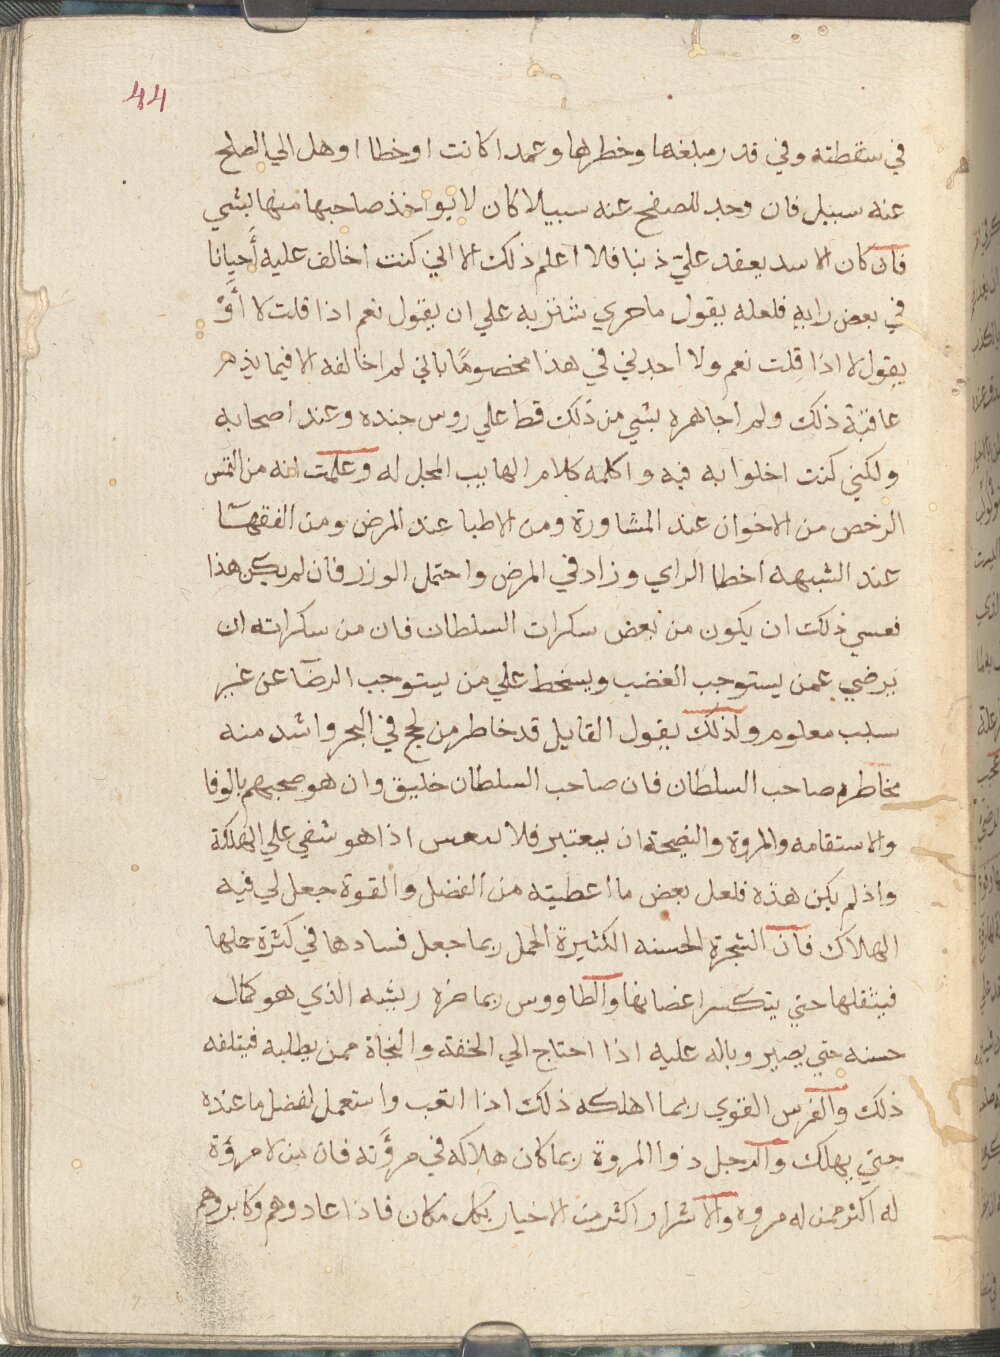 44
في سقطته وفي قدر مبلغها وخطرها وعمدا كانت او خطا او هل الي الصلح
عنه سبيل فان وجد للصفح عنه سبيلا كان لا يواخذ صاحبها منها بشي
فان كان الاسد يعقد علي ذنبا فلا اعلم ذلك الا اني كنت اخالف عليه أحيانا
في بعض رايه فلعله يقول ما جري شنزبه علي ان يقول نعم اذا قلت لا أوْ
يقول لا اذا قلت نعم ولا اجدني في هذا مخصوصا باني لم اخالفه الا فيما يذم
عاقبة ذلك ولم اجاهره بشي من ذلك قط علي روس جنده وعند اصحابه
ولكني كنت اخلوا به فيه واكلمه كلام الهايب المجل له وعلمت انه من التمس
الرخص من الاخوان عند المشاورة ومن الاطبا عند المرض ومن الفقها
عند الشبهه اخطا الراي وزاد في المرض واحتمل الوزر فان لم يكن هذا
فعسي ذلك ان يكون من بعض سكرات السلطان فان من سكراته ان
يرضي عمن يستوجب الغضب ويسخط علي من يستوجب الرضا عن غير
سبب معلوم ولذلك يقول القايل قد خاطر من لجج في البحر واشد منه
مخاطره صاحب السلطان فان صاحب السلطان خليق وان هو صحبهم بالوفا
والاستقامه والمروة والنصيحة ان يعتبر فلا اذا هو شفي علي الهلكة
واذ لم يكن هذه فلعل بعض ما اعطيته من الفضل والقوة جعل لي فيه
الهلاك فان الشجرة الحسنه الكثيرة الحمل ربما جعل فسادها في كثرة حملها
فيثقلها حتي يتكسر اعضانها والطاووس ربما ضره ريشه الذي هو كمال
حسنه حتي يصير وباله عليه اذا احتاج الي الخفة والنجاة ممن يطلبه فيتلفه
ذلك والفرس القوي ربما اهلكه ذلك اذا اتعب واستعمل لفضل ما عنده
حتي يهلك والرجل ذوا المروة ربما كان هلاكه في مروَّته فان من لا مروَة
له اكثر ممن له مروه والاشرار اكثر من الاخيار بكل مكان فاذا عادوهم وكابروهم